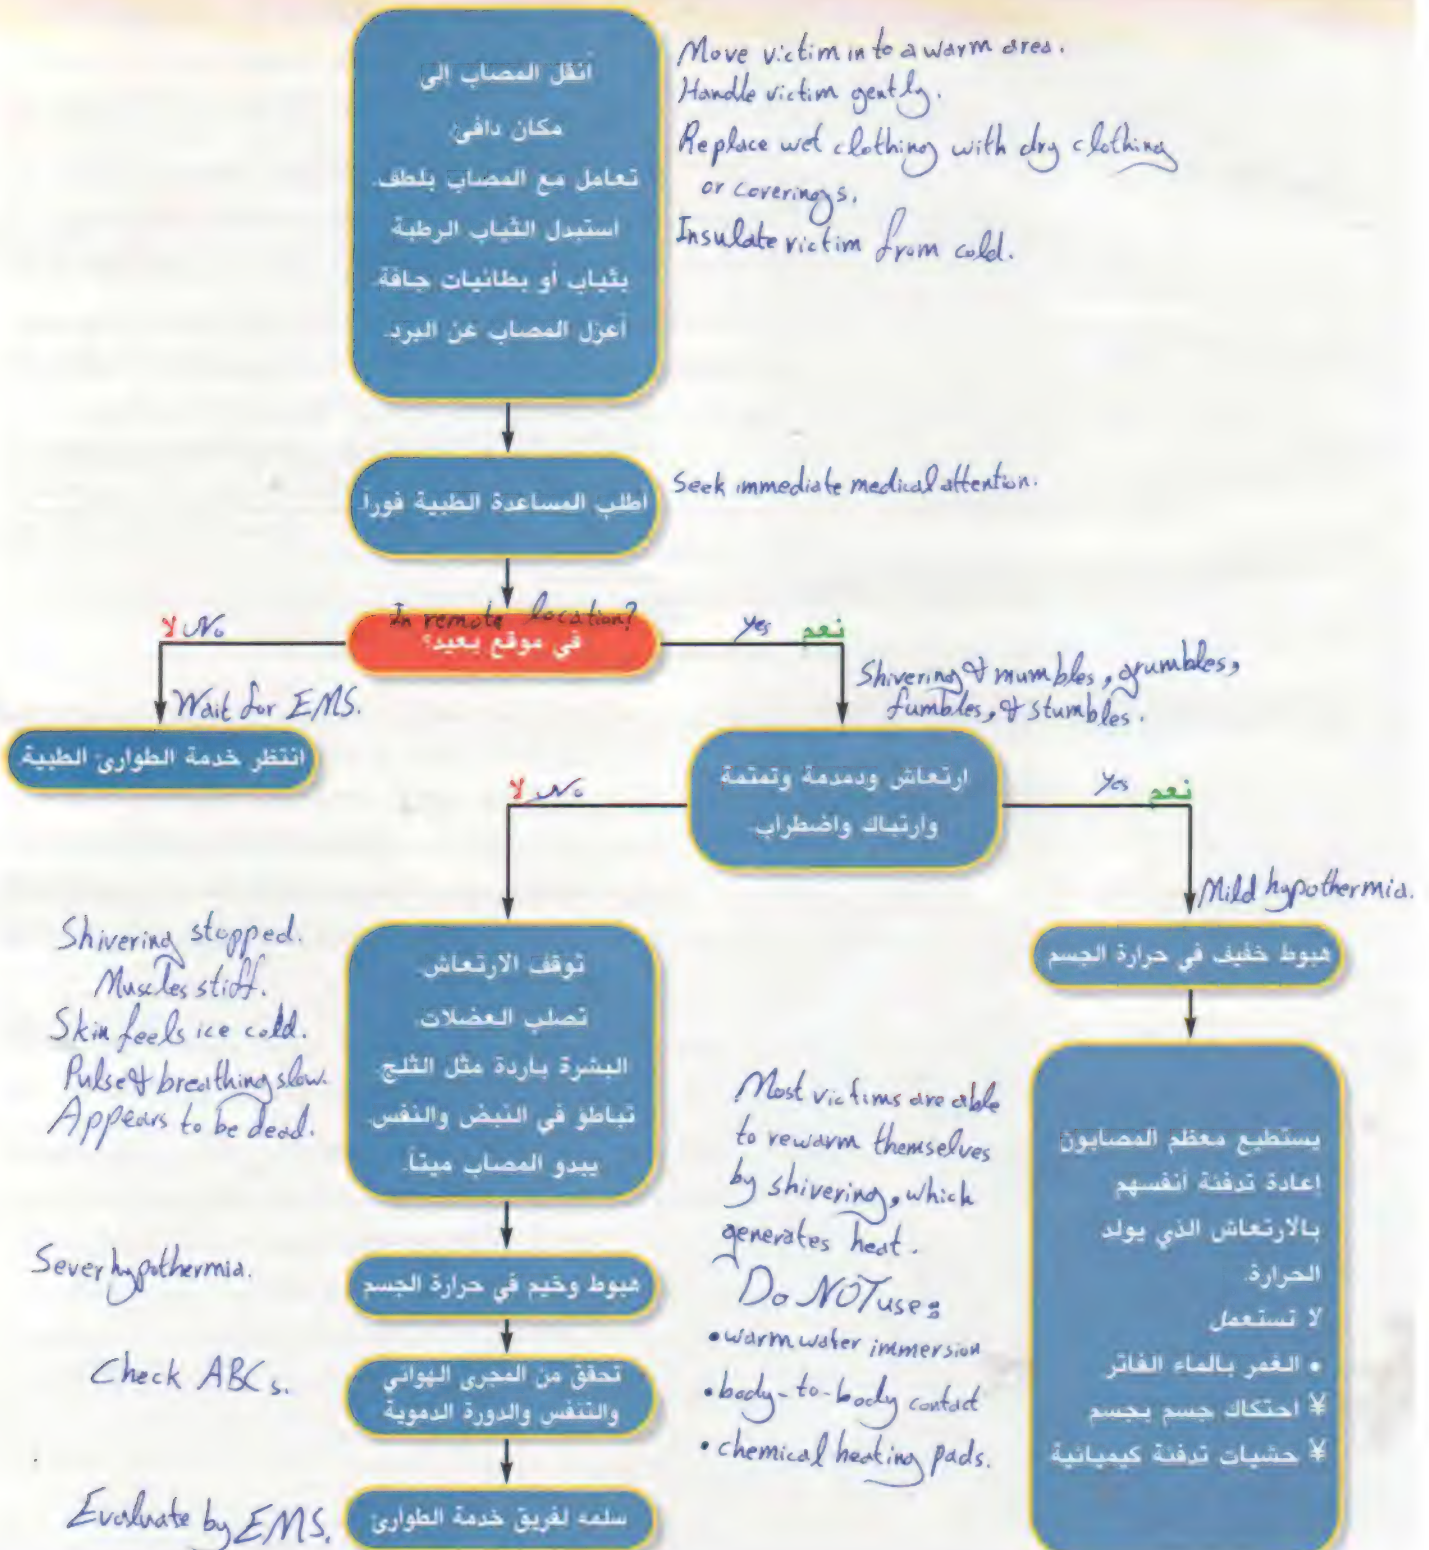 أنقل المصاب إلى
مكان دافئ.
تعامل مع المصاب بلطف.
استبدل الثياب الرطبة
بثياب أو بطانيات جافة.
أعزل المصاب عن البرد.
Move victim in to a warm area.
Handle victim gently.
Replace wet clothing with dry clothing
or coverings.
Insulate victim from cold.
اطلب المساعدة الطبية فوراً.
Seek immediate medical attention.
In remote location?
في موقع بعيد؟
لا No
Yes نعم
Wait for EMS.
انتظر خدمة الطوارئ الطبية
Shivering & mumbles, grumbles,
fumbles, & stumbles.
ارتعاش ودمدمة وتمتمة
وارتباك واضطراب.
لا No
Yes نعم
Mild hypothermia.
هبوط خفيف في حرارة الجسم
Shivering stopped.
Muscles stiff.
Skin feels ice cold.
Pulse & breathing slow.
Appears to be dead.
توقف الارتعاش.
تصلب العضلات.
البشرة باردة مثل الثلج.
تباطؤ في النبض والنفس.
يبدو المصاب ميتاً.
Most victims are able
to rewarm themselves
by shivering, which
generates heat.
Do NOT use:
• warm water immersion
• body-to-body contact
• chemical heating pads.
يستطيع معظم المصابون
إعادة تدفئة أنفسهم
بالارتعاش الذي يولد
الحرارة.
لا تستعمل
• الغمر بالماء الفاتر
¥ احتكاك جسم بجسم
¥ حشيات تدفئة كيميائية
Sever hypothermia.
هبوط وخيم في حرارة الجسم
Check ABCs.
تحقق من المجرى الهوائي
والتنفس والدورة الدموية
Evaluate by EMS.
سلمه لفريق خدمة الطوارئ